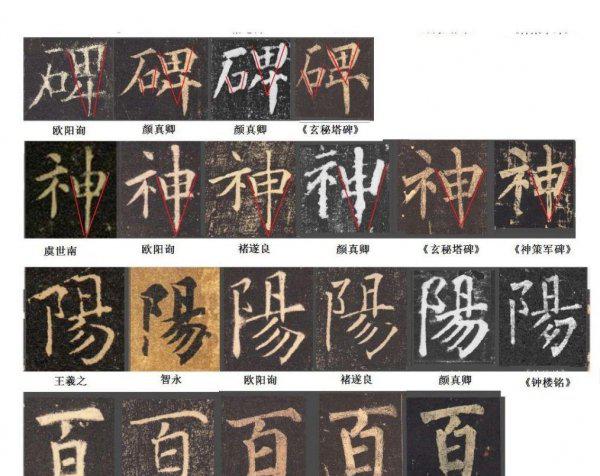 碑 碑 碑 碑
欧阳询 颜真卿 颜真卿 《玄秘塔碑》
神 神 神 神 神 神
虞世南 欧阳询 褚遂良 颜真卿 《玄秘塔碑》 《神策军碑》
陽 陽 陽 陽 陽 陽
王羲之 智永 欧阳询 褚遂良 颜真卿 《钟楼铭》
百 百 百 百 百